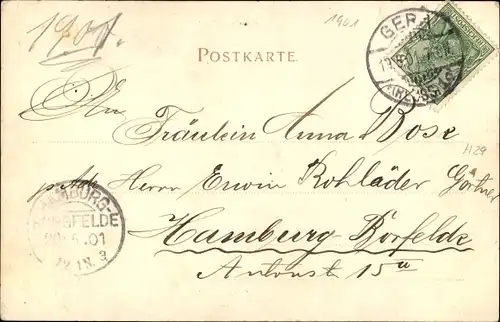 1901.
1901
POSTKARTE.
GERA
(REUSS)
An
Fräulein Anna Bose
A129
p. Adr. Herrn Erwin Rohläder Gärtner
HAMBURG-
BORGFELDE
20.5.01
Hamburg Borfelde
Antonstr 15a